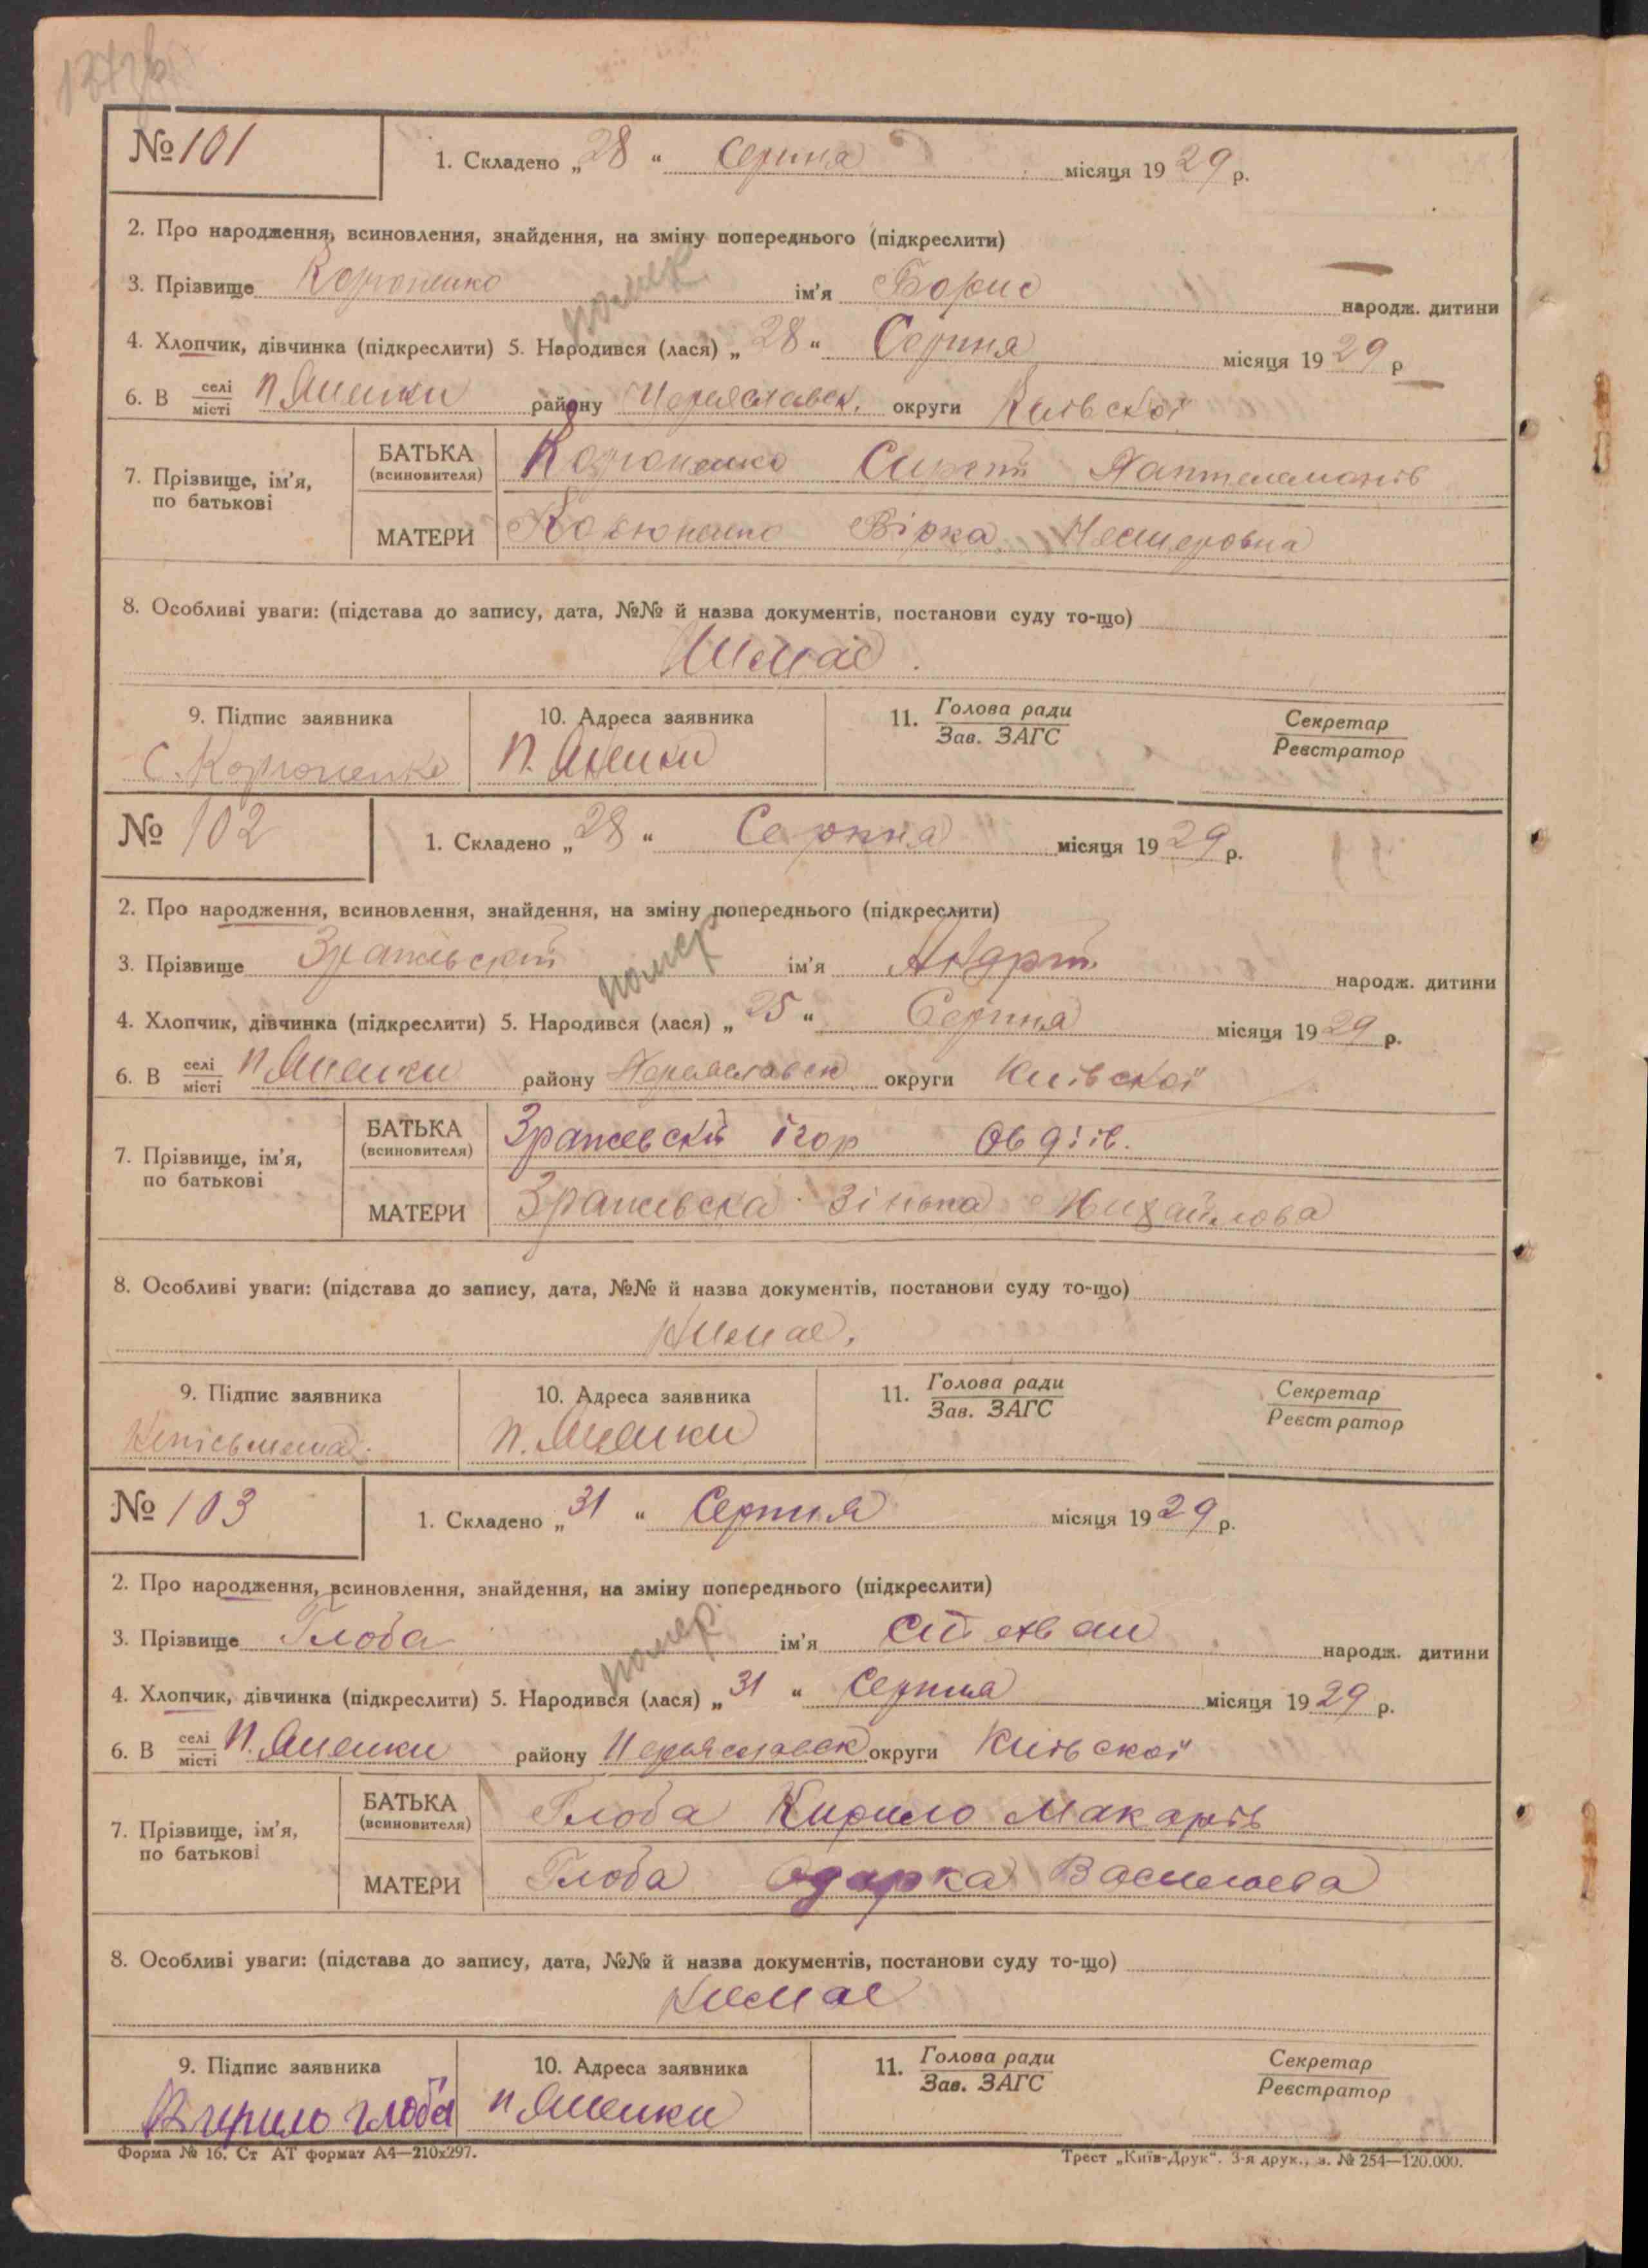 № 101
1. Складено „28“ Серпня місяця 1929 р.
2. Про народження, всиновлення, знайдення, на зміну попереднього (підкреслити)
3. Прізвище ім'я Борис народж. дитини
помер
4. Хлопчик, дівчинка (підкреслити) 5. Народився (лася) „28“ Серпня місяця 1929 р
6. В селі/місті П Яненки району Переяславск. округи Київскої
7. Прізвище, ім'я, по батькові
БАТЬКА (всиновителя)
МАТЕРИ Вірка Нестеровна
8. Особливі уваги: (підстава до запису, дата, №№ й назва документів, постанови суду то-що)
Нимає.
9. Підпис заявника 10. Адреса заявника 11. Голова ради/Зав. ЗАГС Секретар/Реєстратор
С. П. Яненки
№ 102
1. Складено „28“ Серпня місяця 1929 р.
2. Про народження, всиновлення, знайдення, на зміну попереднього (підкреслити)
3. Прізвище ім'я народж. дитини
помер
4. Хлопчик, дівчинка (підкреслити) 5. Народився (лася) „25“ Серпня місяця 1929 р.
6. В селі/місті П Яненки району Переяславск округи Київскої
7. Прізвище, ім'я, по батькові
БАТЬКА (всиновителя) Зражевскй Ігор Овдіїв.
МАТЕРИ Зражевска Зінька Михайлова
8. Особливі уваги: (підстава до запису, дата, №№ й назва документів, постанови суду то-що)
Нимає.
9. Підпис заявника 10. Адреса заявника 11. Голова ради/Зав. ЗАГС Секретар/Реєстратор
Неписьмена. П. Яненки
№ 103
1. Складено „31“ Серпня місяця 1929 р.
2. Про народження, всиновлення, знайдення, на зміну попереднього (підкреслити)
3. Прізвище Глоба ім'я Степан народж. дитини
помер.
4. Хлопчик, дівчинка (підкреслити) 5. Народився (лася) „31“ Серпня місяця 1929 р.
6. В селі/місті П. Яненки району Переяславск округи Київскої
7. Прізвище, ім'я, по батькові
БАТЬКА (всиновителя) Глоба Кирило Макарів
МАТЕРИ Глоба Одарка Васильева
8. Особливі уваги: (підстава до запису, дата, №№ й назва документів, постанови суду то-що)
Нимає
9. Підпис заявника 10. Адреса заявника 11. Голова ради/Зав. ЗАГС Секретар/Реєстратор
Кирило глоба П Яненки
Форма № 16. Ст АТ формат А4—210х297. Трест „Київ-Друк“. 3-я друк., з. № 254—120.000.